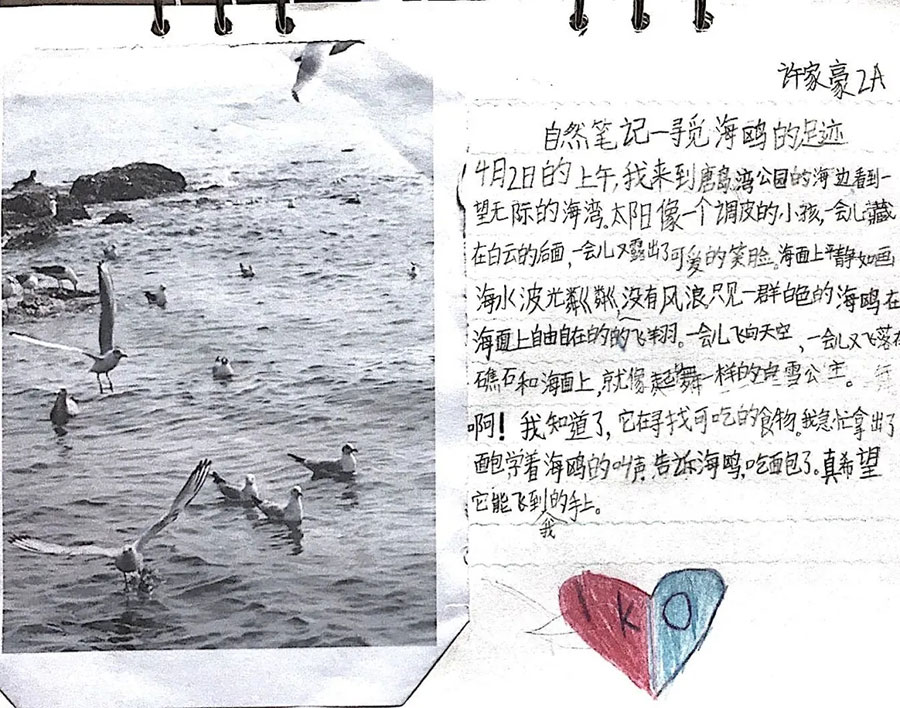 许家豪 2A
自然笔记—寻觅海鸥的足迹
4月2日的上午,我来到唐岛湾公园的海边看到一
望无际的海湾。太阳像一个调皮的小孩,一会儿藏
在白云的后面,一会儿又露出了可爱的笑脸。海面上平静如画,
海水波光粼粼,没有风浪只见一群白色的海鸥在
海面上自由自在的的飞翔。一会儿飞向天空,一会儿又飞落在
礁石和海面上,就像起舞一样的白雪公主。
啊!我知道了,它在寻找可吃的食物。我急忙拿出了
面包学着海鸥的叫声告诉海鸥,吃面包了。真希望
它能飞到我的手上。
IKO